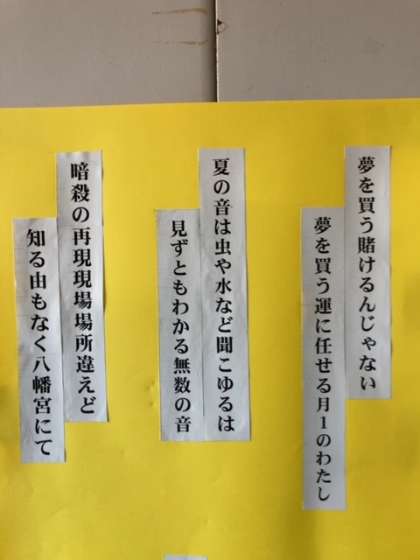 夢を買う賭けるんじゃない
夢を買う運に任せる月1のわたし
夏の音は虫や水など聞こゆるは
見ずともわかる無数の音
暗殺の再現現場場所違えど
知る由もなく八幡宮にて